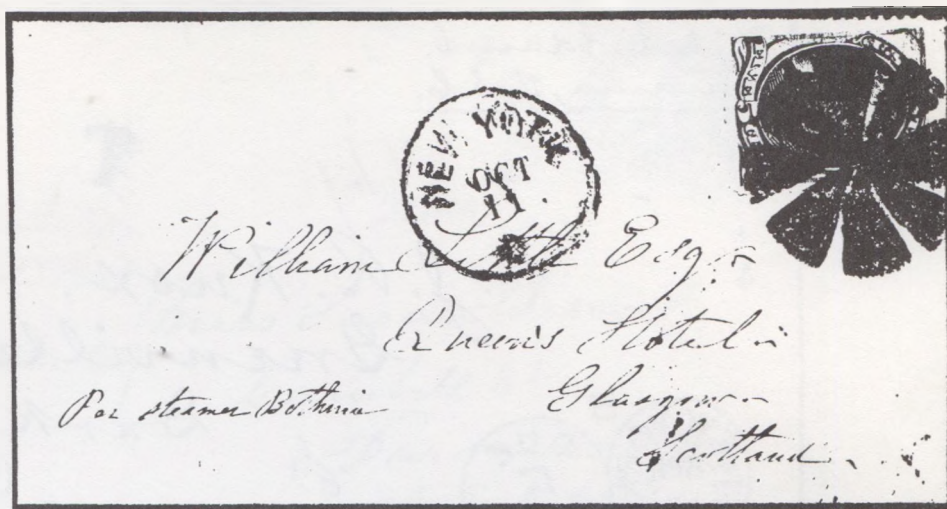 NEW YORK
OCT
11
William Little Esq
Queen's Hotel
Glasgow
Scotland
Per steamer Bothnia